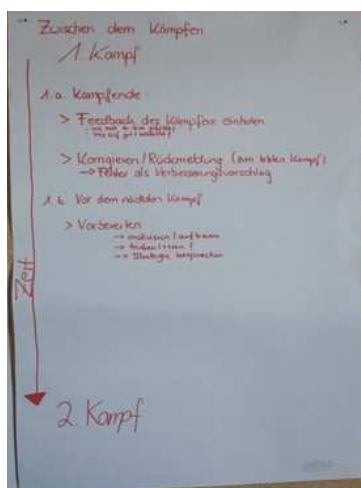 Zwischen dem Kämpfen
1. Kampf
1. a. Kampfende
> Feedback des Kämpfers einholen
> Korrigieren / Rückmeldung (zum letzten Kampf)
→ Fehler als Verbesserungsvorschlag
1. b. Vor dem nächsten Kampf
> Vorbereiten
→ motivieren / aufbauen
→ Strategie besprechen
Zeit
2. Kampf